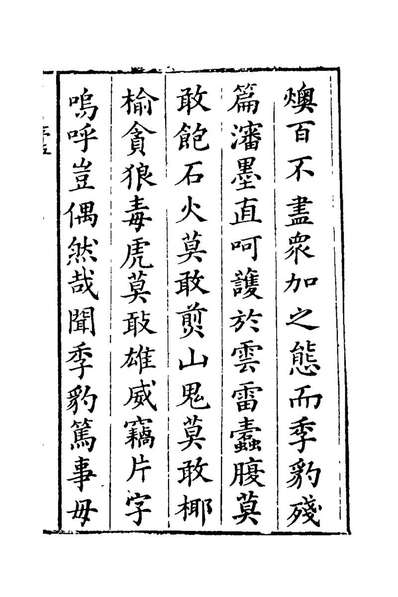 燠百不盡衆加之態而季豹殘
篇瀋墨直呵護於雲雷蠹腹莫
敢飽石火莫敢山鬼莫敢椰
榆貪狼毒虎莫敢雄威竊片字
嗚呼豈偶然哉聞季豹篤事毋